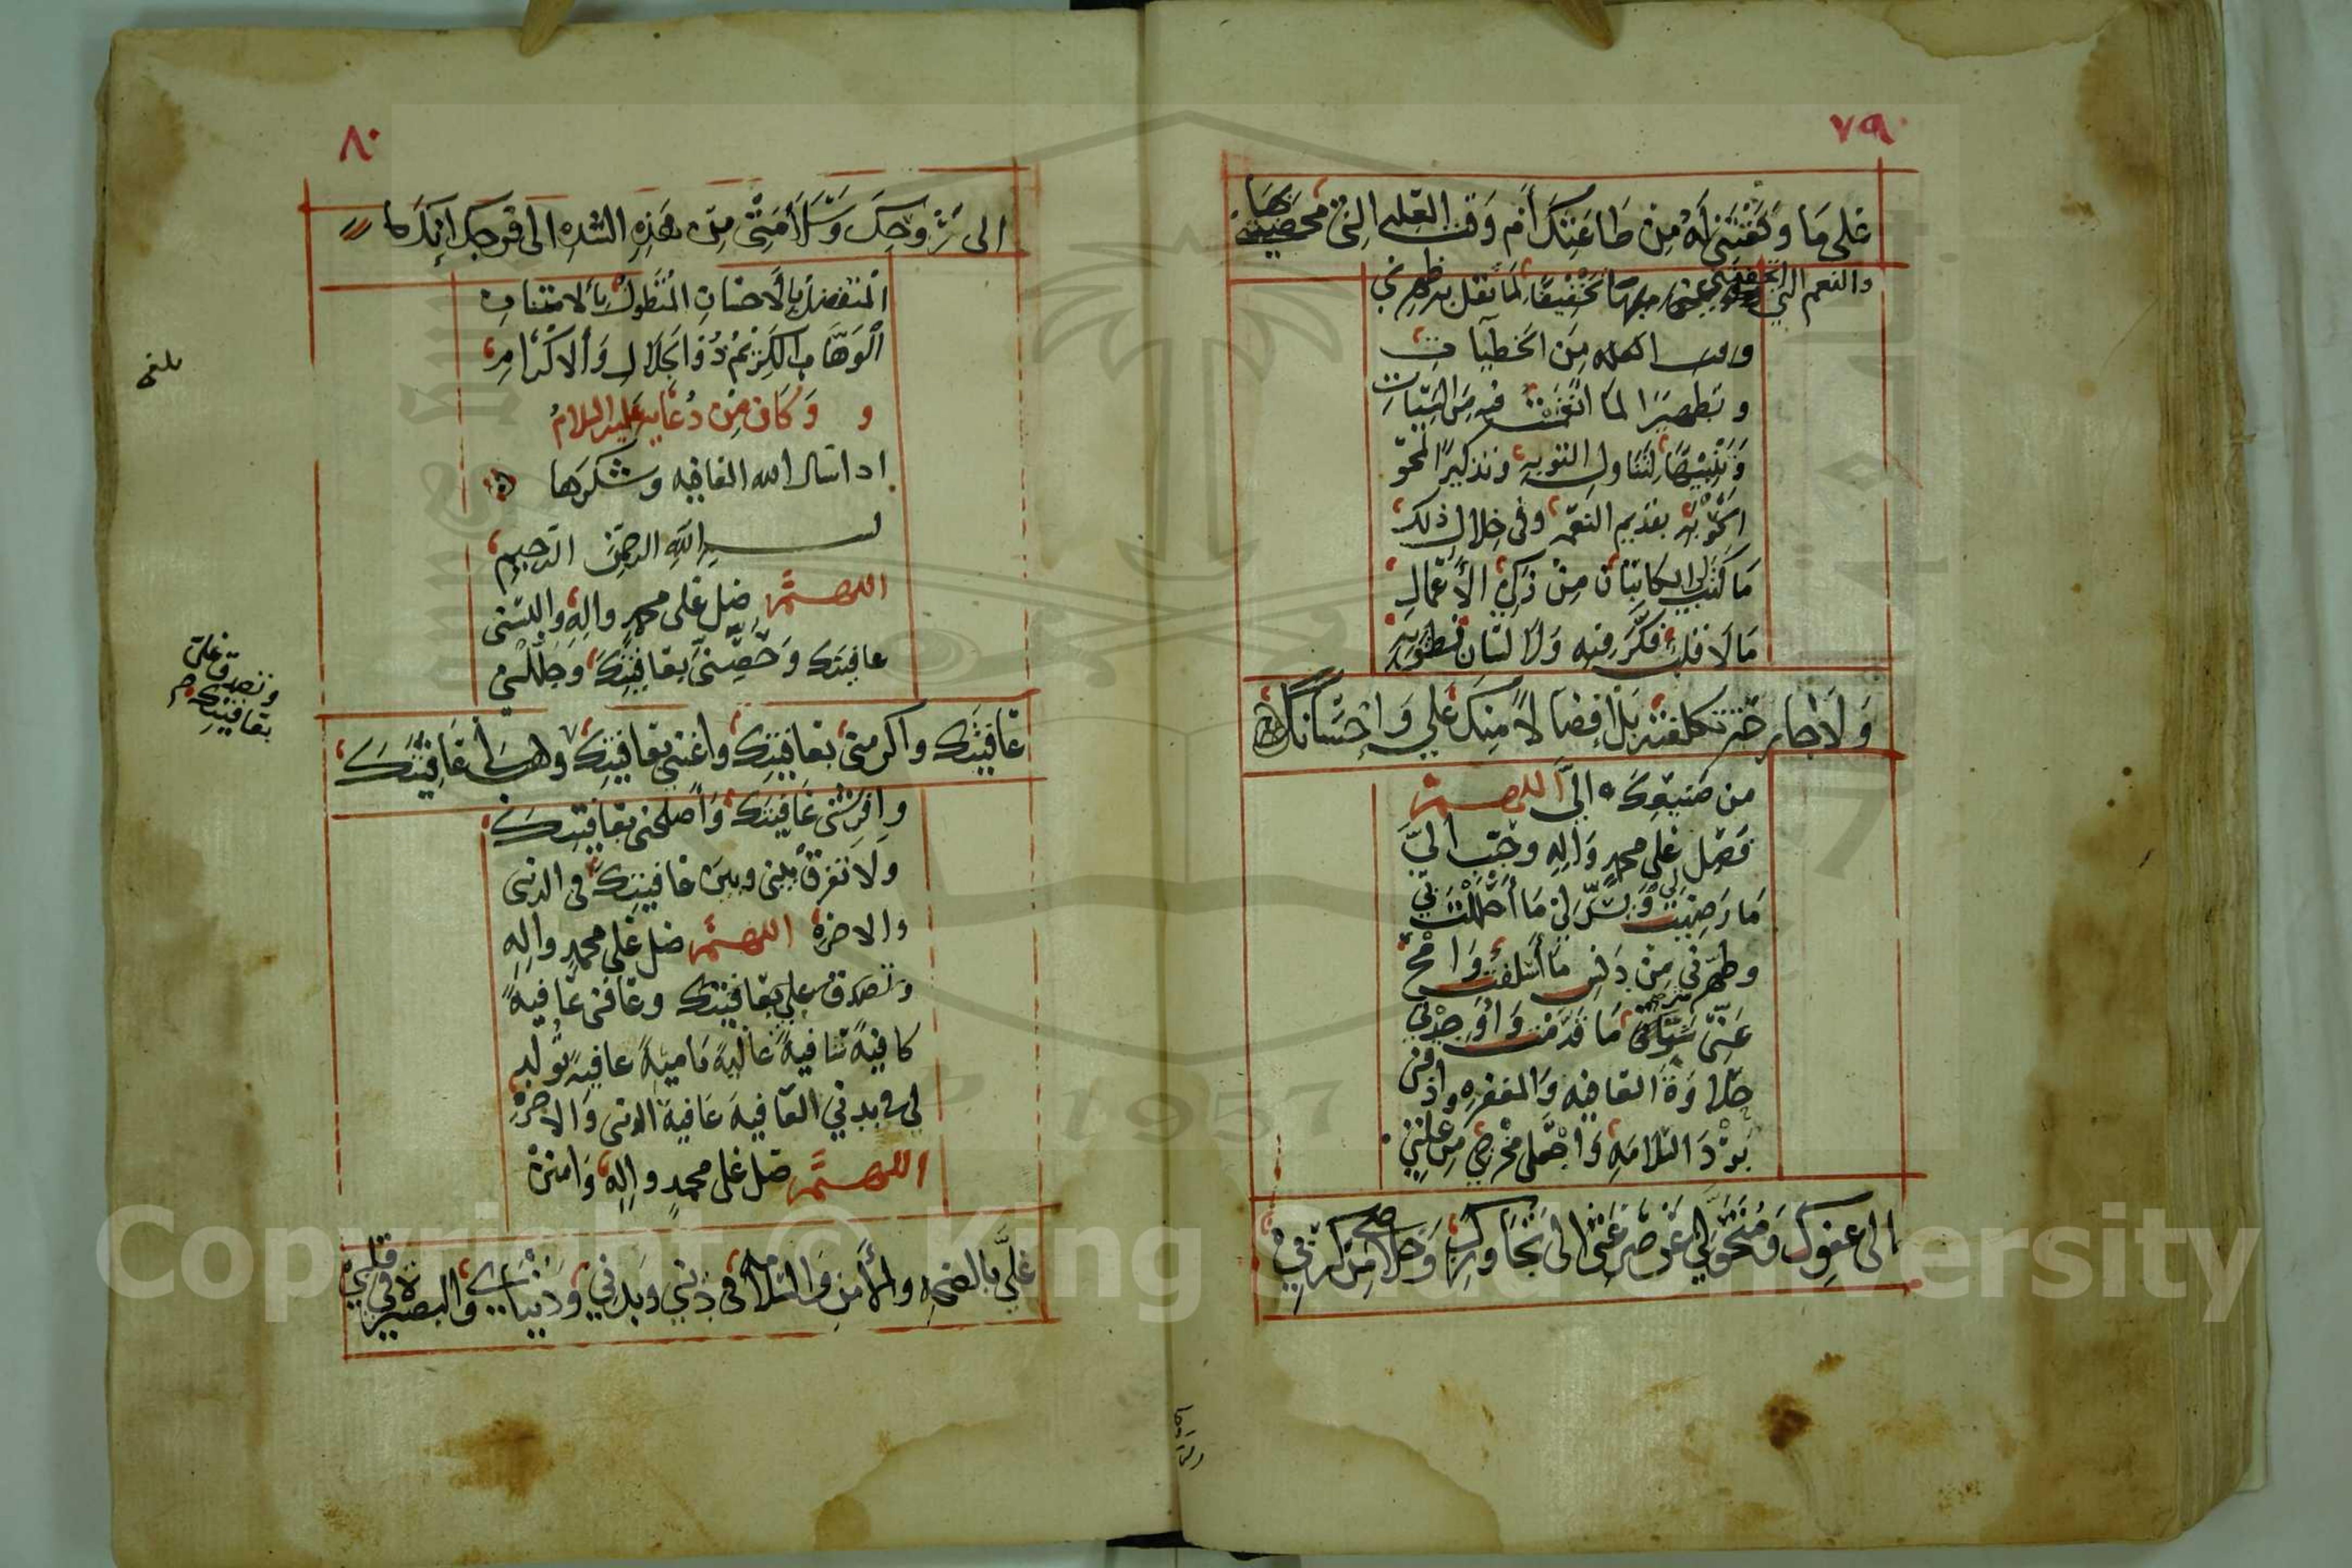 ٧٩
على ما وفقتني له من طاعتك أم وقت العلة التي محصتني بها
والنعم التي اتحفتني بها تخفيفا لما ثقل به ظهري
من الخطيات
وتطهيرا لما انغمست فيه من السيات
وتنبيها لتناول التوبة وتذكيرا لمحو
الحوبة بقديم النعمة وفي خلال ذلك
ما كتب لي الكاتبان من زكي الأعمال
ما لا قلب فكر فيه ولا لسان نطق به
ولا جارحة تكلفته بل إفضالا منك علي وإحسانا
من صنيعك الي اللهم
فصل على محمد واله وحبب الي
ما رضيت لي ويسر لي ما أحللت بي
وطهرني من دنس ما أسلفت وامح
عني شر ما قدمت وأوجدني
حلاوة العافية والمغفرة واذقني
برد السلامة واجعل مخرجي من علتي
الى عفوك ومتحولي عن صرعتي الى تجاوزك وخلاصي من كربي
٨٠
الى روحك وسلامتي من هذه الشدة الى فرجك إنك
المتفضل بالاحسان المتطول بالامتنان
الوهاب الكريم ذو الجلال والاكرام
و وكان من دعايه عليه السلام
اذا سال الله العافيه وشكرها
بسم الله الرحمن الرحيم
اللهم صل على محمد واله والبسني
عافيتك وحصني بعافيتك وجللني
عافيتك واكرمني بعافيتك واغنني بعافيتك وهب لي عافيتك
وافرشني عافيتك وأصلحني بعافيتك
ولا تفرق بيني وبين عافيتك في الدنى
والاخرة اللهم صل على محمد واله
وتصدق علي بعافيتك وعافني عافية
كافية شافية عالية نامية عافية تولد
في بدني العافية عافية الدنى والاخرة
اللهم صل على محمد واله وامنن
علي بالصحة والأمن والسلامة في ديني وبدني ودنياي والبصيرة في قلبي
وتصدق علي
بعافيتك
Copyright © King Saud University
1957